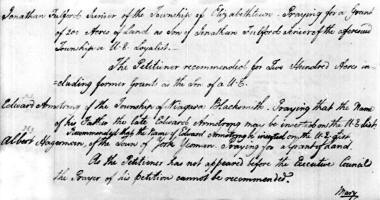 Jonathan Fulford Junior of the Township of Elizabethtown. Praying for a Grant
of 200 Acres of Land as Son of Jonathan Fulford Senior of the aforesaid
Township a U.E Loyalist.
The Petitioner recommended for Two Hundred Acres in-
cluding former Grants as the Son of a U.E.
Edward Armstrong of the Township of Niagara Blacksmith. Praying that the Name
of his Father the late Edward Armstrong may be inserted on the U.E. List.
Recommended that the Name of Edward Armstrong be inserted on the U.E. List
Albert Hagerman, of the Town of York Yeoman. Praying for a Grant of Land.
As the Petitioner has not appeared before the Executive Council
the Prayer of his petition cannot be recommended.
Mary